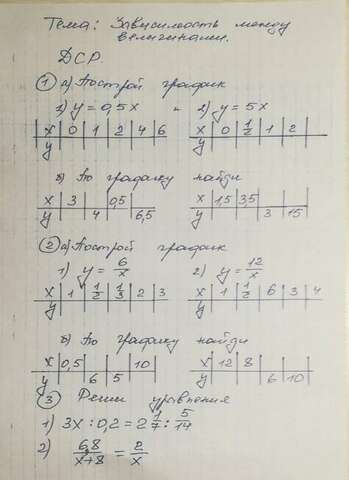 Тема: Зависимость между
величинами.
ДСР.
① а) Построй график
1) y = 0,5x 2) y = 5x
x | 0 | 1 | 2 | 4 | 6 x | 0 | 1/2 | 1 | 2 |
y y
б) По графику найди
x | 3 | | 0,5 | x | 1,5 | 3,5 | |
y | | 4 | | 6,5 y | | | 3 | 15
② а) Построй график
1) y = 6/x 2) y = 12/x
x | 1 | 1/2 | 1/3 | 2 | 3 x | 1 | 1/2 | 6 | 3 | 4
y y
б) По графику найди
x | 0,5 | | | 10 x | 12 | 8 | |
y | | 6 | 5 | y | | | 6 | 10
③ Реши уравнения
1) 3x : 0,2 = 2 1/7 : 5/14
2) 6,8/x+8 = 2/x